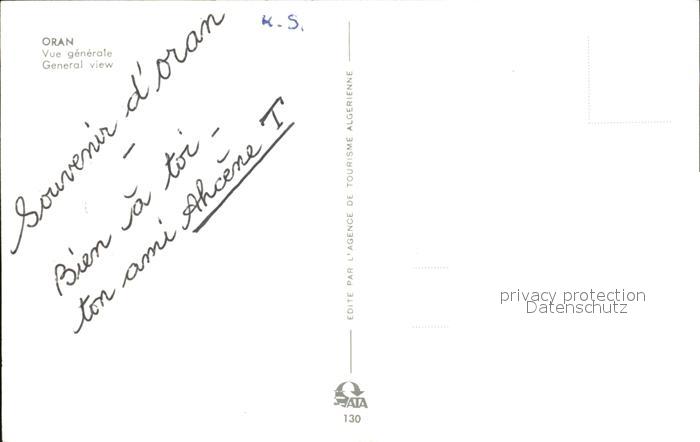 ORAN
Vue générale
General view
K.S.
Souvenir d'oran
-
Bien à toi -
ton ami Ahcène T
EDITE PAR L'AGENCE DE TOURISME ALGERIENNE
ATA
130
privacy protection
Datenschutz